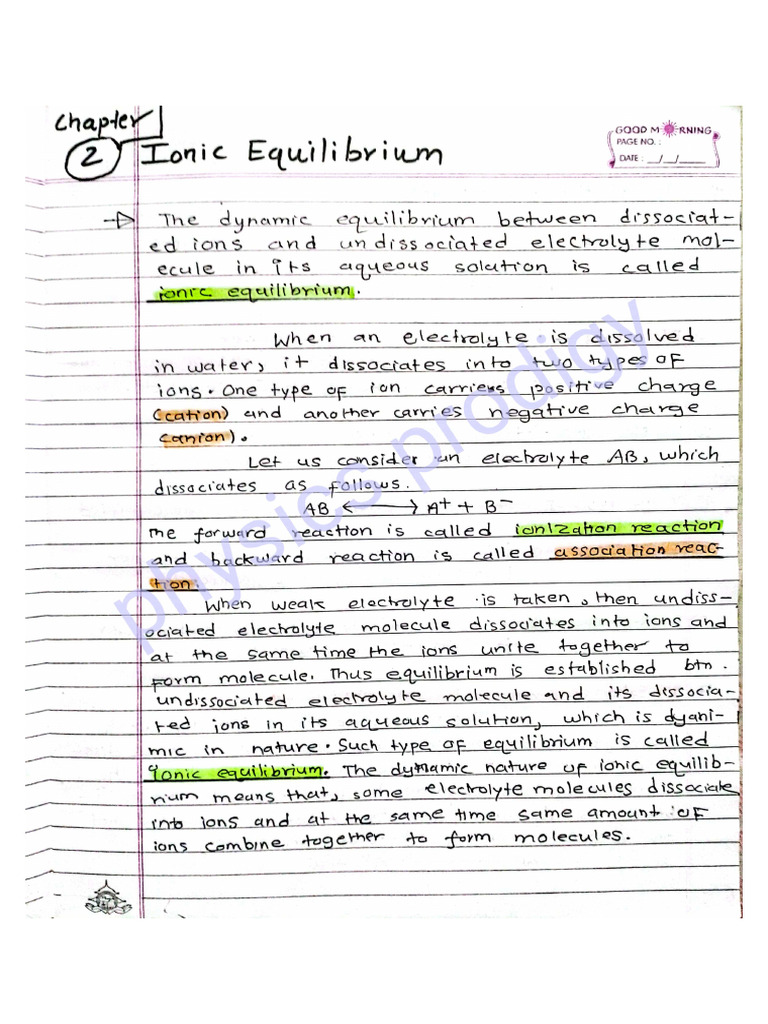 Chapter
2 Ionic Equilibrium
GOOD MORNING
PAGE NO. :
DATE : _/_/_
The dynamic equilibrium between dissociat-
ed ions and undissociated electrolyte mol-
ecule in its aqueous solution is called
ionic equilibrium.
When an electrolyte is dissolved
in water, it dissociates into two types of
ions. One type of ion carriers positive charge
(cation) and another carries negative charge
(anion).
Let us consider an electrolyte AB, which
dissociates as follows.
AB ⟷ A+ + B-
The forward reaction is called ionization reaction
and backward reaction is called association reac-
tion.
When weak electrolyte is taken, then undiss-
ociated electrolyte molecule dissociates into ions and
at the same time the ions unite together to
form molecule. Thus equilibrium is established btn.
undissociated electrolyte molecule and its dissocia-
ted ions in its aqueous solution, which is dyani-
mic in nature. Such type of equilibrium is called
ionic equilibrium. The dynamic nature of ionic equilib-
rium means that, some electrolyte molecules dissociate
into ions and at the same time same amount of
ions combine together to form molecules.
physics prodigy